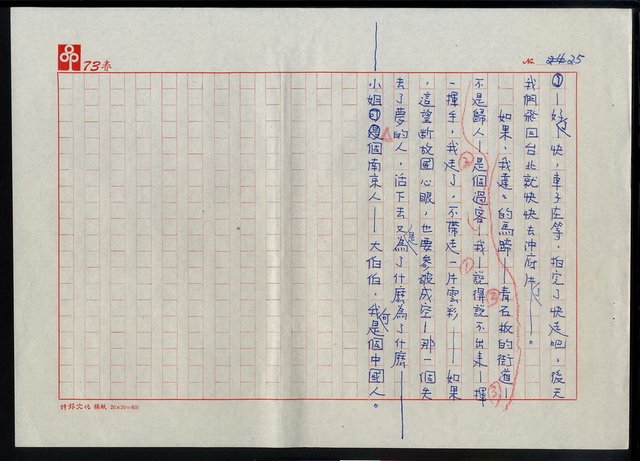 73春
№ 25
①—好快,車子在等,拍完了快走吧,後天
我們發回台北就快快去沖底片——。
如果,我達〻的馬蹄—②青石板的街道—③
不是歸人—是個過客,我—①說得說不出來—揮
一揮手,②我走了,不帶走一片雲彩——如果
,這望斷故國心眼,也要參破成空—那一個失
去了夢的人,活下去又是為了什麼為了什麼——
小姐是個南京人——大伯伯,我是個中國人。
特齡文化 稿紙 20×20=400